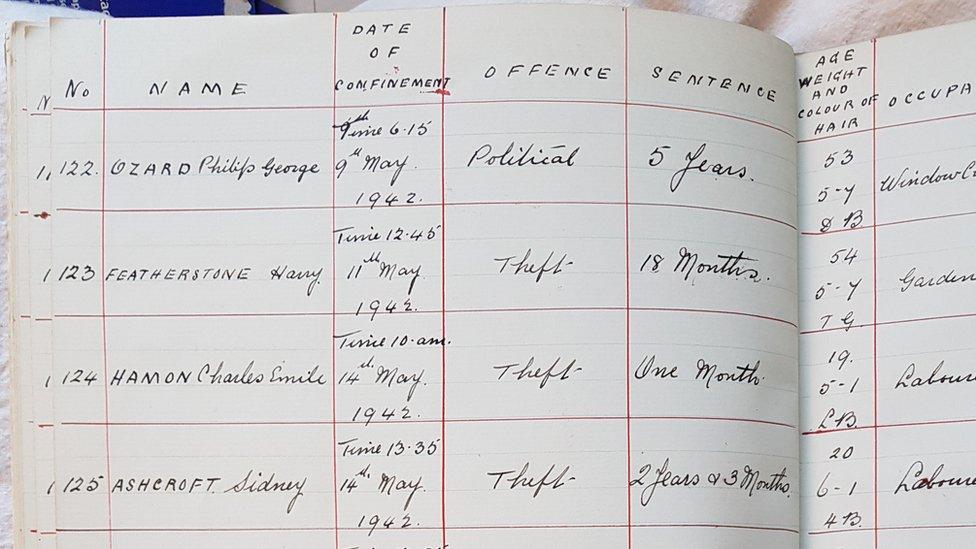 No NAME DATE OF CONFINEMENT OFFENCE SENTENCE AGE WEIGHT AND COLOUR OF HAIR OCCUPA
122. OZARD Philip George Time 6.15 9th May. 1942. Political 5 Years. 53 5-7 DB Window
123 FEATHERSTONE Harry. Time 12.45 11th May 1942. Theft 18 Months. 54 5-7 Garden
124 HAMON Charles Emile Time 10.am. 14th May. 1942. Theft One Month. 19. 5-1 L.B. Laboure
125 ASHCROFT. Sidney Time 13.35 14th May. 1942. Theft 2 Years & 3 Months. 20 6-1 Laboure